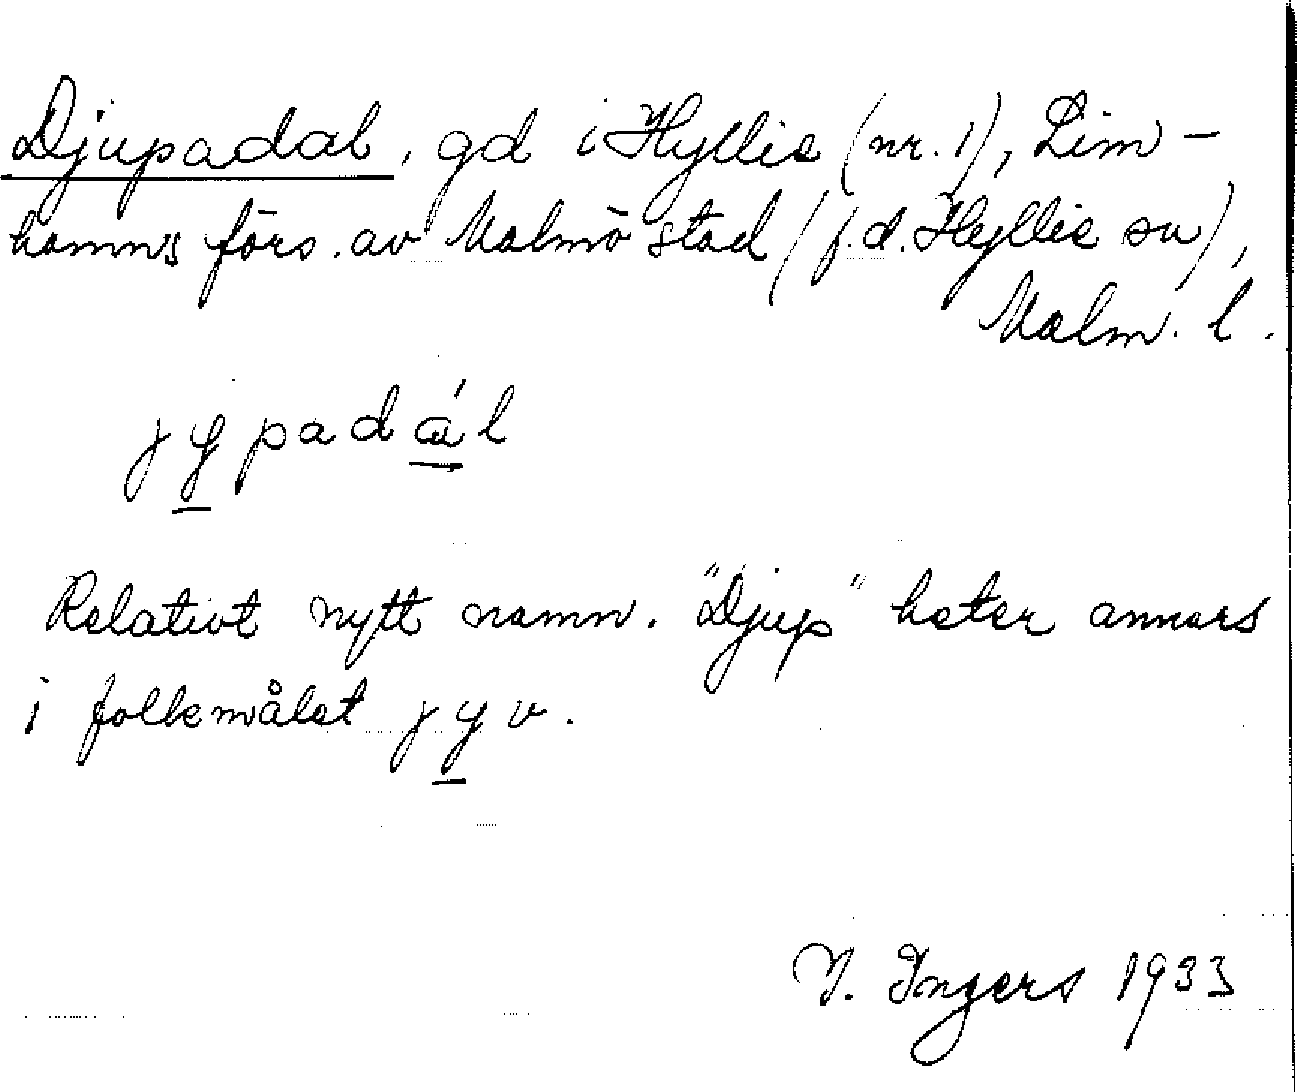 Djupadal, gd i Hyllie (nr. 1), Lim-
hamns förs. av Malmö stad (f.d. Hyllie sn),
Malm. l.
jy̲padá̲l
Relativt nytt namn. "Djup" heter annars
i folkemålet jy̲v.
I. Ingers 1933